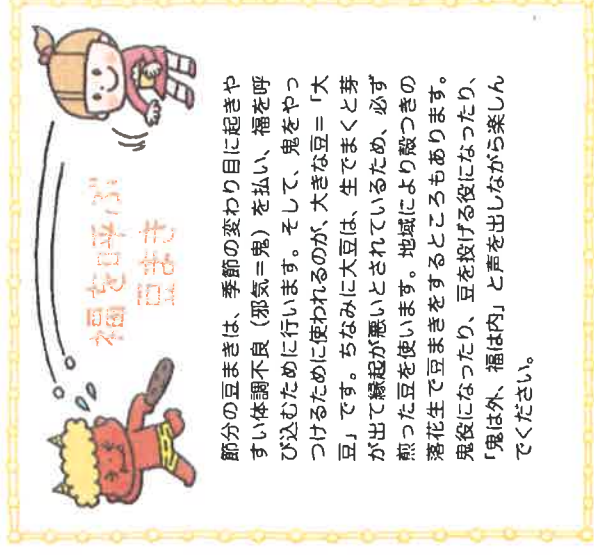 福を呼ぶ
豆まき
節分の豆まきは、季節の変わり目に起きや
すい体調不良（邪気＝鬼）を払い、福を呼
び込むために行います。そして、鬼をやっ
つけるために使われるのが、大きな豆＝「大
豆」です。ちなみに大豆は、生でまくと芽
が出て縁起が悪いとされているため、必ず
煎った豆を使います。地域により殻つきの
落花生で豆まきをするところもあります。
鬼役になったり、豆を投げる役になったり、
「鬼は外、福は内」と声を出しながら楽しん
でください。